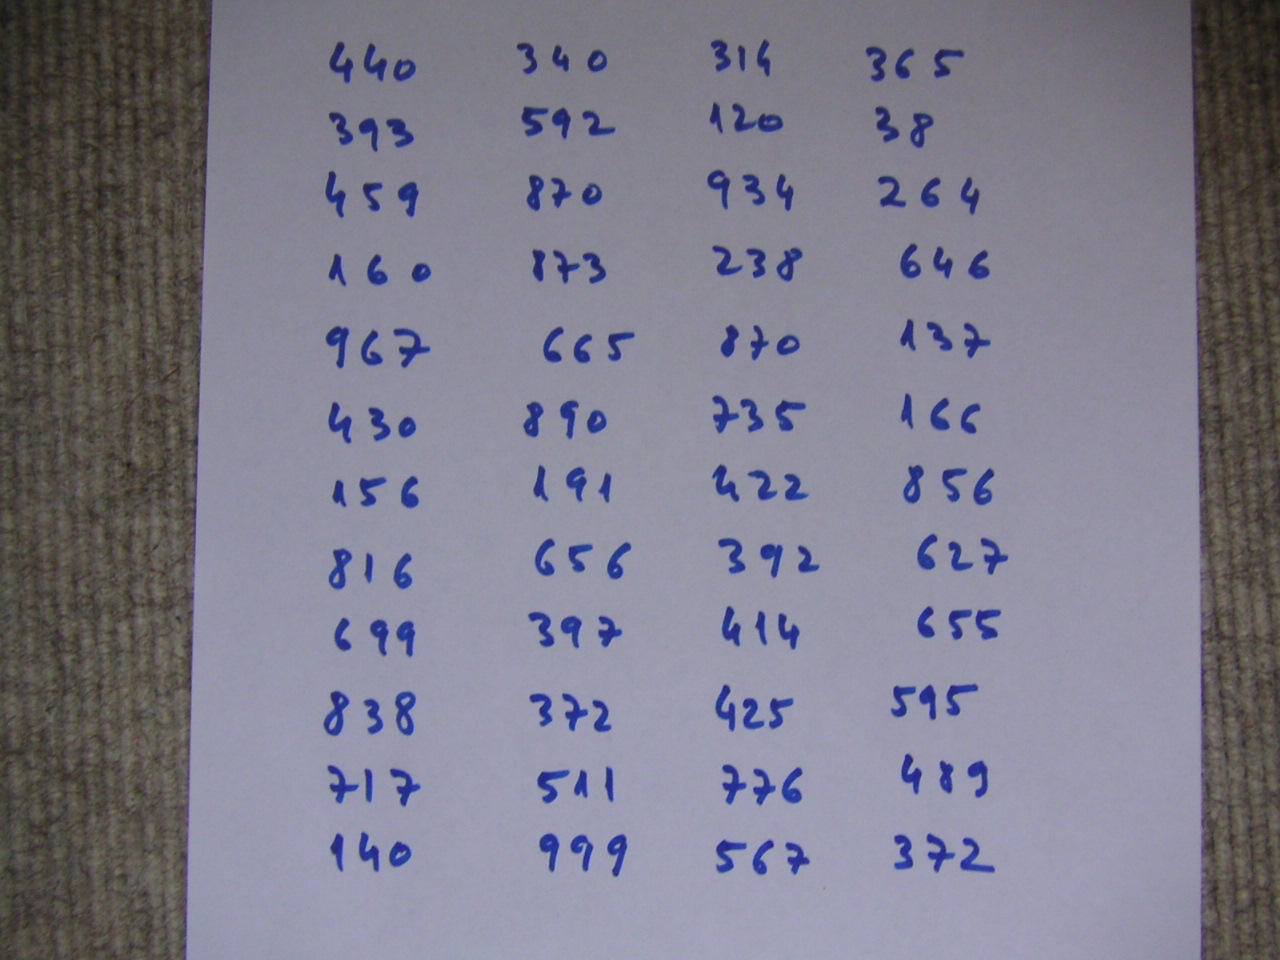 440 340 314 365
393 592 120 38
459 870 934 264
160 873 238 646
967 665 870 137
430 890 735 166
156 191 422 856
816 656 392 627
699 397 414 655
838 372 425 595
717 511 776 489
140 999 567 372